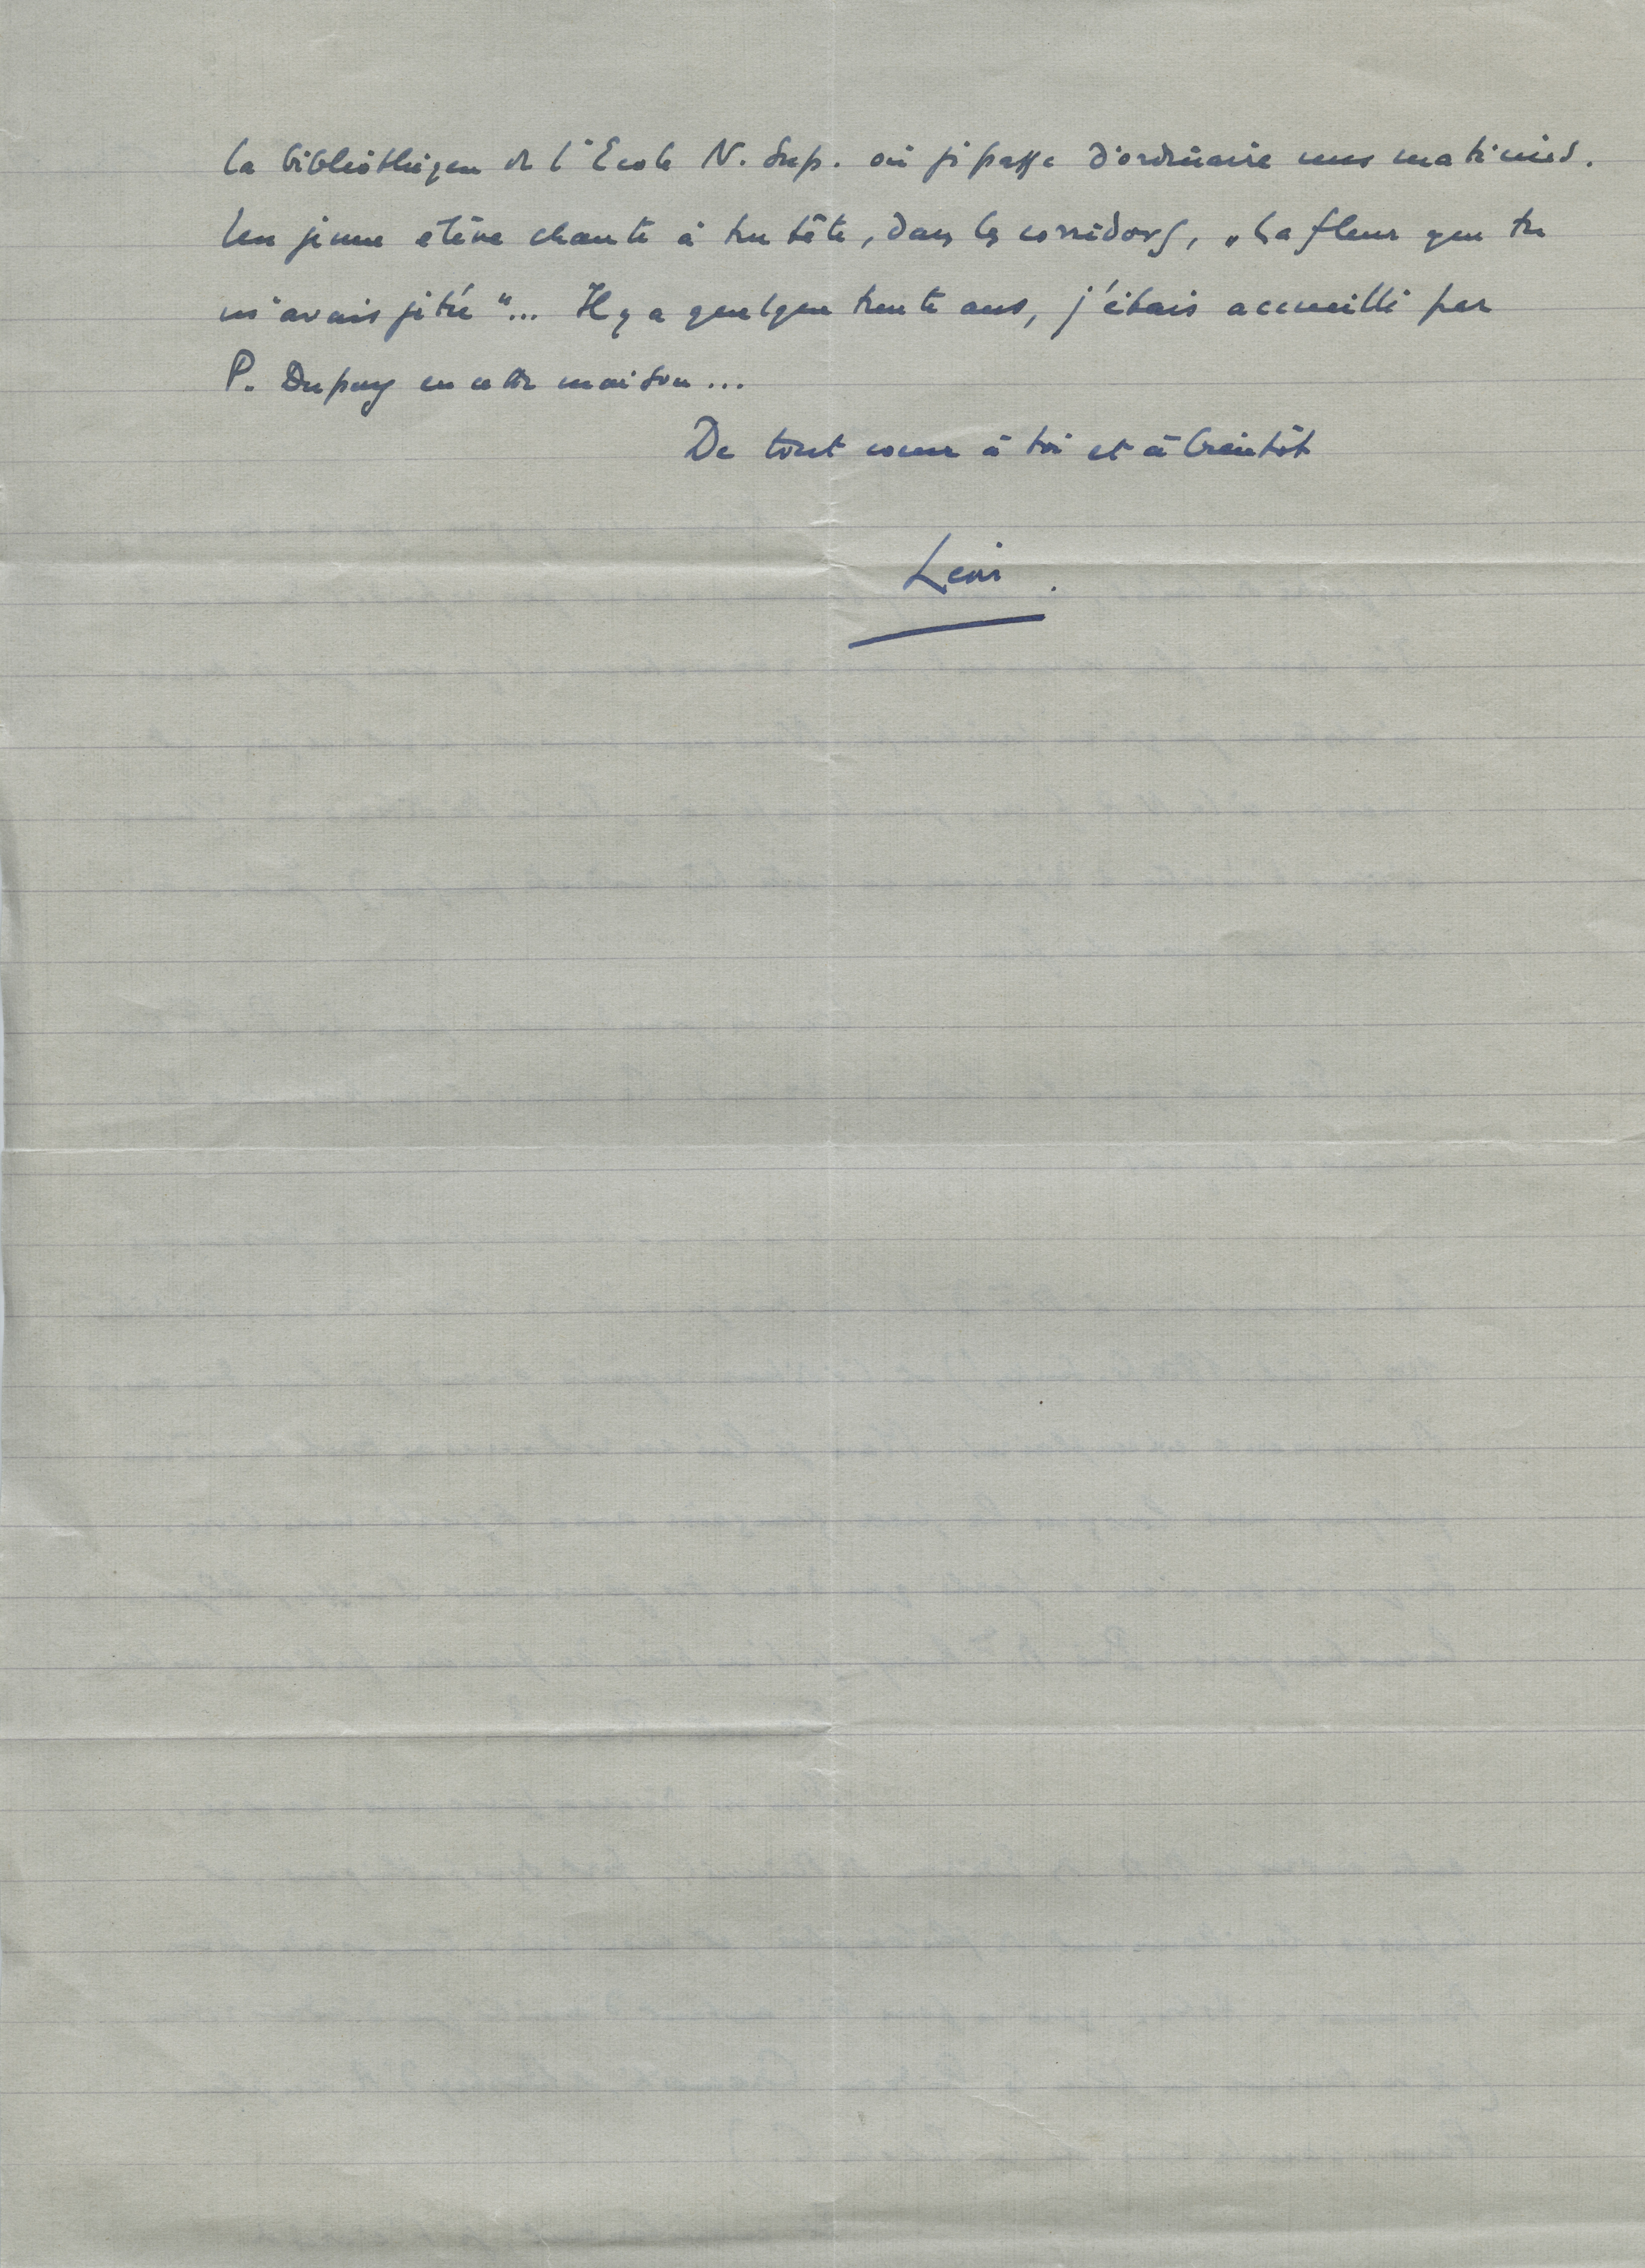 la bibliothèque de l'Ecole N. Sup. où je passe d'ordinaire mes matinées.
Un jeune élève chante à tue tête, dans les corridors, „La fleur que tu
m'avais jetée"... Il y a quelque trente ans, j'étais accueilli par
P. Dupuy en cette maison...
De tout coeur à toi et à bientôt